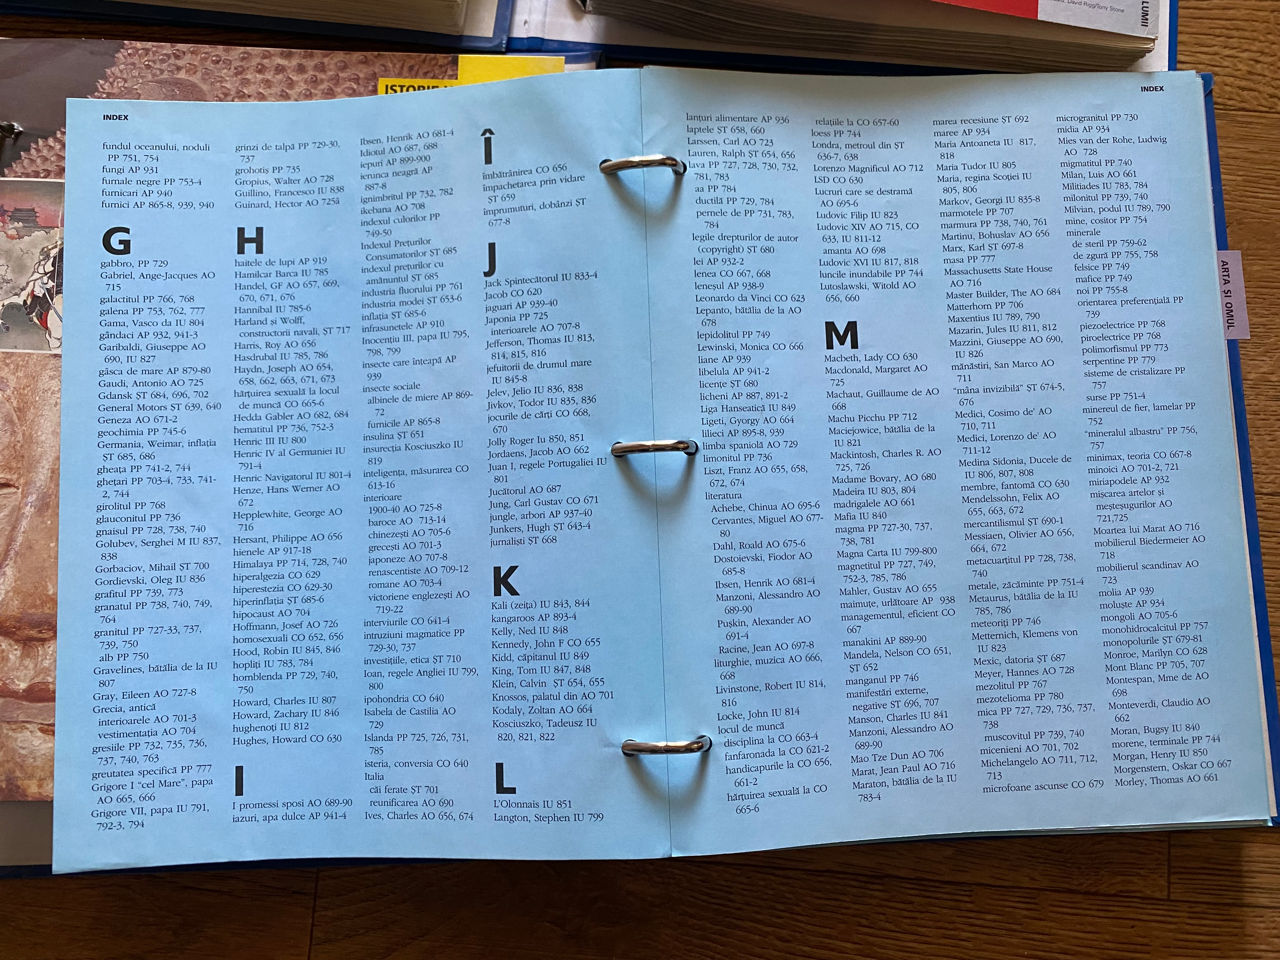 LUMII
David Rigg/Tony Stone
ISTORIE
INDEX
fundul oceanului, noduli
PP 751, 754
fungi AP 931
furnale negre PP 753-4
furnicari AP 940
furnici AP 865-8, 939, 940
G
gabbro, PP 729
Gabriel, Ange-Jacques AO
715
galactitul PP 766, 768
galena PP 753, 762, 777
Gama, Vasco da IU 804
gândaci AP 932, 941-3
Garibaldi, Giuseppe AO
690, IU 827
gâsca de mare AP 879-80
Gaudi, Antonio AO 725
Gdansk ȘT 684, 696, 702
General Motors ȘT 639, 640
Geneza AO 671-2
geochimia PP 745-6
Germania, Weimar, inflația
ȘT 685, 686
gheața PP 741-2, 744
ghețari PP 703-4, 733, 741-
2, 744
girolitul PP 768
glauconitul PP 736
gnaisul PP 728, 738, 740
Golubev, Serghei M IU 837,
838
Gorbaciov, Mihail ȘT 700
Gordievski, Oleg IU 836
grafitul PP 739, 773
granatul PP 738, 740, 749,
764
granitul PP 727-33, 737,
739, 750
alb PP 750
Gravelines, bătălia de la IU
807
Gray, Eileen AO 727-8
Grecia, antică
interioarele AO 701-3
vestimentația AO 704
gresiile PP 732, 735, 736,
737, 740, 763
greutatea specifică PP 777
Grigore I "cel Mare", papa
AO 665, 666
Grigore VII, papa IU 791,
792-3, 794
grinzi de talpă PP 729-30,
737
grohotiș PP 735
Gropius, Walter AO 728
Guillino, Francesco IU 838
Guinard, Hector AO 725â
H
haitele de lupi AP 919
Hamilcar Barca IU 785
Handel, GF AO 657, 669,
670, 671, 676
Hannibal IU 785-6
Harland și Wolff,
constructorii navali, ȘT 717
Harris, Roy AO 656
Hasdrubal IU 785, 786
Haydn, Joseph AO 654,
658, 662, 663, 671, 673
hărțuirea sexuală la locul
de muncă CO 665-6
Hedda Gabler AO 682, 684
hematitul PP 736, 752-3
Henric III IU 800
Henric IV al Germaniei IU
791-4
Henric Navigatorul IU 801-4
Henze, Hans Werner AO
672
Hepplewhite, George AO
716
Hersant, Philippe AO 656
hienele AP 917-18
Himalaya PP 714, 728, 740
hiperalgezia CO 629
hiperestezia CO 629-30
hiperinflația ȘT 685-6
hipocaust AO 704
Hoffmann, Josef AO 726
homosexuali CO 652, 656
Hood, Robin IU 845, 846
hopliți IU 783, 784
hornblenda PP 729, 740,
750
Howard, Charles IU 807
Howard, Zachary IU 846
hughenoți IU 812
Hughes, Howard CO 630
I
I promessi sposi AO 689-90
iazuri, apa dulce AP 941-4
Ibsen, Henrik AO 681-4
Idiotul AO 687, 688
iepuri AP 899-900
ierunca neagră AP
887-8
ignimbritul PP 732, 782
ikebana AO 708
indexul culorilor PP
749-50
Indexul Prețurilor
Consumatorilor ȘT 685
indexul prețurilor cu
amănuntul ȘT 685
industria fluorului PP 761
industria modei ȘT 653-6
inflația ȘT 685-6
infrasunetele AP 910
Inocențiu III, papa IU 795,
798, 799
insecte care înțeapă AP
939
insecte sociale
albinele de miere AP 869-
72
furnicile AP 865-8
insulina ȘT 651
insurecția Kosciuszko IU
819
inteligența, măsurarea CO
613-16
interioare
1900-40 AO 725-8
baroce AO 713-14
chinezești AO 705-6
grecești AO 701-3
japoneze AO 707-8
renascentiste AO 709-12
romane AO 703-4
victoriene englezești AO
719-22
interviurile CO 641-4
intruziuni magmatice PP
729-30, 737
investițiile, etica ȘT 710
Ioan, regele Angliei IU 799,
800
ipohondria CO 640
Isabela de Castilia AO
729
Islanda PP 725, 726, 731,
785
isteria, conversia CO 640
Italia
căi ferate ȘT 701
reunificarea AO 690
Ives, Charles AO 656, 674
Î
îmbătrânirea CO 656
împachetarea prin vidare
ȘT 659
împrumuturi, dobânzi ȘT
677-8
J
Jack Spintecătorul IU 833-4
Jacob CO 620
jaguari AP 939-40
Japonia PP 725
interioarele AO 707-8
Jefferson, Thomas IU 813,
814, 815, 816
jefuitorii de drumul mare
IU 845-8
Jelev, Jelio IU 836, 838
Jivkov, Todor IU 835, 836
jocurile de cărți CO 668,
670
Jolly Roger Iu 850, 851
Jordaens, Jacob AO 662
Juan I, regele Portugaliei IU
801
Jucătorul AO 687
Jung, Carl Gustav CO 671
jungle, arbori AP 937-40
Junkers, Hugh ȘT 643-4
jurnaliști ȘT 668
K
Kali (zeița) IU 843, 844
kangaroos AP 893-4
Kelly, Ned IU 848
Kennedy, John F CO 655
Kidd, căpitanul IU 849
King, Tom IU 847, 848
Klein, Calvin ȘT 654, 655
Knossos, palatul din AO 701
Kodaly, Zoltan AO 664
Kosciuszko, Tadeusz IU
820, 821, 822
L
L'Olonnais IU 851
Langton, Stephen IU 799
INDEX
lanțuri alimentare AP 936
laptele ȘT 658, 660
Larssen, Carl AO 723
Lauren, Ralph ȘT 654, 656
lava PP 727, 728, 730, 732,
781, 783
aa PP 784
ductilă PP 729, 784
pernele de PP 731, 783,
784
legile drepturilor de autor
(copyright) ȘT 680
lei AP 932-2
lenea CO 667, 668
leneșul AP 938-9
Leonardo da Vinci CO 623
Lepanto, bătălia de la AO
678
lepidolitul PP 749
Lewinski, Monica CO 666
liane AP 939
libelula AP 941-2
licențe ȘT 680
licheni AP 887, 891-2
Liga Hanseatică IU 849
Ligeti, Gyorgy AO 664
lilieci AP 895-8, 939
limba spaniolă AO 729
limonitul PP 736
Liszt, Franz AO 655, 658,
672, 674
literatura
Achebe, Chinua AO 695-6
Cervantes, Miguel AO 677-
80
Dahl, Roald AO 675-6
Dostoievski, Fiodor AO
685-8
Ibsen, Henrik AO 681-4
Manzoni, Alessandro AO
689-90
Pușkin, Alexander AO
691-4
Racine, Jean AO 697-8
liturghie, muzica AO 666,
668
Livinstone, Robert IU 814,
816
Locke, John IU 814
locul de muncă
disciplina la CO 663-4
fanfaronada la CO 621-2
handicapurile la CO 656,
661-2
hărțuirea sexuală la CO
665-6
relațiile la CO 657-60
loess PP 744
Londra, metroul din ȘT
636-7, 638
Lorenzo Magnificul AO 712
LSD CO 630
Lucruri care se destramă
AO 695-6
Ludovic Filip IU 823
Ludovic XIV AO 715, CO
633, IU 811-12
amanta AO 698
Ludovic XVI IU 817, 818
luncile inundabile PP 744
Lutoslawski, Witold AO
656, 660
M
Macbeth, Lady CO 630
Macdonald, Margaret AO
725
Machaut, Guillaume de AO
668
Machu Picchu PP 712
Maciejowice, bătălia de la
IU 821
Mackintosh, Charles R. AO
725, 726
Madame Bovary, AO 680
Madeira IU 803, 804
madrigalele AO 661
Mafia IU 840
magma PP 727-30, 737,
738, 781
Magna Carta IU 799-800
magnetitul PP 727, 749,
752-3, 785, 786
Mahler, Gustav AO 655
maimuțe, urlătoare AP 938
managementul, eficient CO
667
manakini AP 889-90
Mandela, Nelson CO 651,
ȘT 652
manganul PP 746
manifestări externe,
negative ȘT 696, 707
Manson, Charles IU 841
Manzoni, Alessandro AO
689-90
Mao Tze Dun AO 706
Marat, Jean Paul AO 716
Maraton, bătălia de la IU
783-4
marea recesiune ȘT 692
maree AP 934
Maria Antoaneta IU 817,
818
Maria Tudor IU 805
Maria, regina Scoției IU
805, 806
Markov, Georgi IU 835-8
marmotele PP 707
marmura PP 738, 740, 761
Martinu, Bohuslav AO 656
Marx, Karl ȘT 697-8
masa PP 777
Massachusetts State House
AO 716
Master Builder, The AO 684
Matterhorn PP 706
Maxentius IU 789, 790
Mazarin, Jules IU 811, 812
Mazzini, Giuseppe AO 690,
IU 826
mănăstiri, San Marco AO
711
"mâna invizibilă" ȘT 674-5,
676
Medici, Cosimo de' AO
710, 711
Medici, Lorenzo de' AO
711-12
Medina Sidonia, Ducele de
IU 806, 807, 808
membre, fantomă CO 630
Mendelssohn, Felix AO
655, 663, 672
mercantilismul ȘT 690-1
Messiaen, Olivier AO 656,
664, 672
metacuarțitul PP 728, 738,
740
metale, zăcăminte PP 751-4
Metaurus, bătălia de la IU
785, 786
meteoriți PP 746
Metternich, Klemens von
IU 823
Mexic, datoria ȘT 687
Meyer, Hannes AO 728
mezolitul PP 767
mezotelioma PP 780
mica PP 727, 729, 736, 737,
738
muscovitul PP 739, 740
micenieni AO 701, 702
Michelangelo AO 711, 712,
713
microfoane ascunse CO 679
microgranitul PP 730
midia AP 934
Mies van der Rohe, Ludwig
AO 728
migmatitul PP 740
Milan, Luis AO 661
Militiades IU 783, 784
milonitul PP 739, 740
Milvian, podul IU 789, 790
mine, cositor PP 754
minerale
de steril PP 759-62
de zgură PP 755, 758
felsice PP 749
mafice PP 749
noi PP 755-8
orientarea preferențială PP
739
piezoelectrice PP 768
piroelectrice PP 768
polimorfismul PP 773
serpentine PP 779
sisteme de cristalizare PP
757
surse PP 751-4
minereul de fier, lamelar PP
752
"mineralul albastru" PP 756,
757
minimax, teoria CO 667-8
minoici AO 701-2, 721
miriapodele AP 932
mișcarea artelor și
meșteșugurilor AO
721,725
Moartea lui Marat AO 716
mobilierul Biedermeier AO
718
mobilierul scandinav AO
723
molia AP 939
moluște AP 934
mongoli AO 705-6
monohidrocalcitul PP 757
monopolurile ȘT 679-81
Monroe, Marilyn CO 628
Mont Blanc PP 705, 707
Montespan, Mme de AO
698
Monteverdi, Claudio AO
662
Moran, Bugsy IU 840
morene, terminale PP 744
Morgan, Henry IU 850
Morgenstern, Oskar CO 667
Morley, Thomas AO 661
ARTA ȘI OMUL